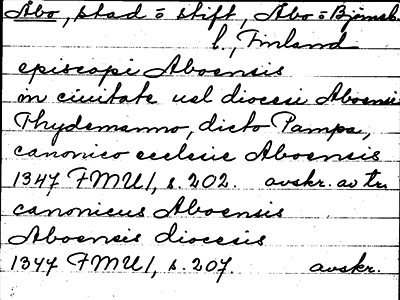 Åbo, stad o stift, Åbo o Björneb.
l., Finland
episcopi Aboensis
in ciuitate uel diocesi Aboensi
Thydemanno, dicto Pampa,
canonico ecclesie Aboensis
1347 FMU 1, s. 202. avskr. av tr.
canonicus Aboensis
Aboensis diocesis
1347 FMU 1, s. 207. avskr.